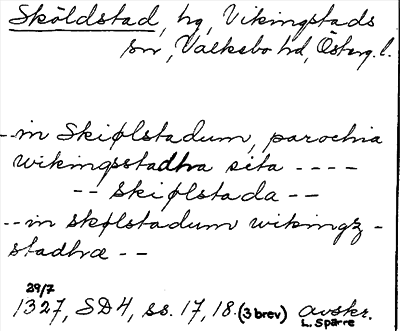 Sköldstad, hg, Vikingstads
sn, Valkebo hd, Österg. l.
--in Skiølstadum, parochia
wikingsstadha sita ----
-- skiølstada --
--in skølstadum wikingz-
stadhæ --
29/7
1327, SD4, ss. 17, 18. (3 brev) avskr.
L. Sparre